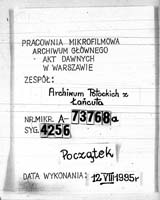 PRACOWNIA MIKROFILMOWA
ARCHIWUM GŁÓWNEGO
AKT DAWNYCH
W WARSZAWIE
ZESPÓŁ:
Archiwum Potockich z
Łańcuta
NR.MIKR. A-73768a
SYG. 4256
Początek
DATA WYKONANIA: 12 VIII 1985r